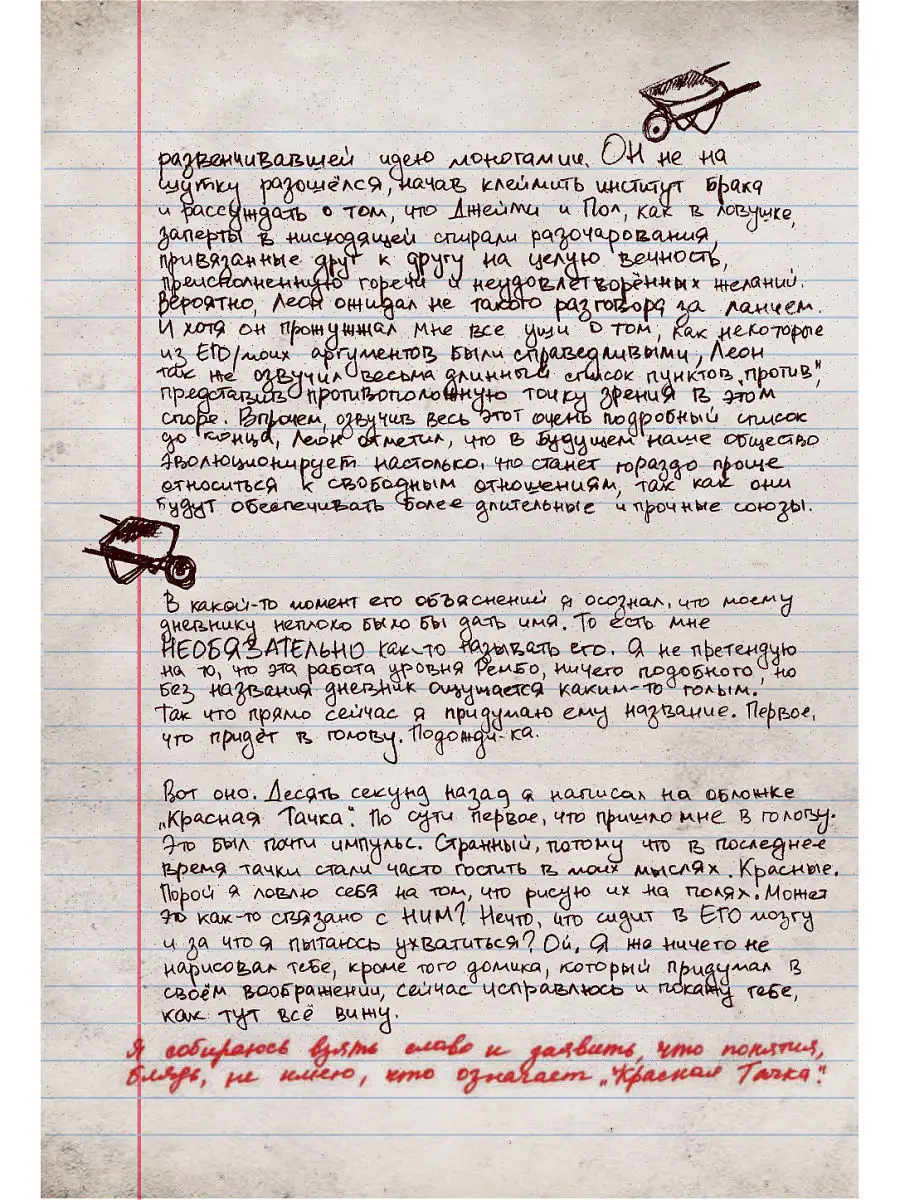 развенчивавшей идею моногамии. ОН не на
шутку разошёлся, начав клеймить институт брака
и рассуждать о том, что Джейми и Пол, как в ловушке,
заперты в нисходящей спирали разочарования,
привязанные друг к другу на целую вечность,
преисполненную горечи и неудовлетворённых желаний.
Вероятно, Леон ожидал не такого разговора за ланчем.
И хотя он прожужжал мне все уши о том, как некоторые
из ЕГО/моих аргументов были справедливыми, Леон
так же озвучил весьма длинный список пунктов „против“,
представив противоположную точку зрения в этом
споре. Впрочем, озвучив весь этот очень подробный список
до конца, Леон отметил, что в будущем наше общество
эволюционирует настолько, что станет гораздо проще
относиться к свободным отношениям, так как они
будут обеспечивать более длительные и прочные союзы.
В какой-то момент его объяснений я осознал, что моему
дневнику неплохо было бы дать имя. То есть мне
НЕОБЯЗАТЕЛЬНО как-то называть его. Я не претендую
на то, что эта работа уровня Рембо, ничего подобного, но
без названия дневник ощущается каким-то голым.
Так что прямо сейчас я придумаю ему название. Первое,
что придёт в голову. Подожди-ка.
Вот оно. Десять секунд назад я написал на обложке
„Красная Тачка“. По сути первое, что пришло мне в голову.
Это был почти импульс. Странный, потому что в последнее
время тачки стали часто гостить в моих мыслях. Красные.
Порой я ловлю себя на том, что рисую их на полях. Может
это как-то связано с НИМ? Нечто, что сидит в ЕГО мозгу
и за что я пытаюсь ухватиться? Ой. Я же ничего не
нарисовал тебе, кроме того домика, который придумал в
своём воображении, сейчас исправлюсь и покажу тебе,
как тут всё вижу.
Я собираюсь взять слово и заявить, что понятия,
блядь, не имею, что означает „Красная Тачка“.